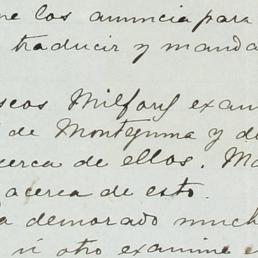 los anuncia para
traducir y manda
Milford exam
de Montezuma y d
cerca de ellos. Ma
acerca de esto.
a demorado much
ni otro examine e